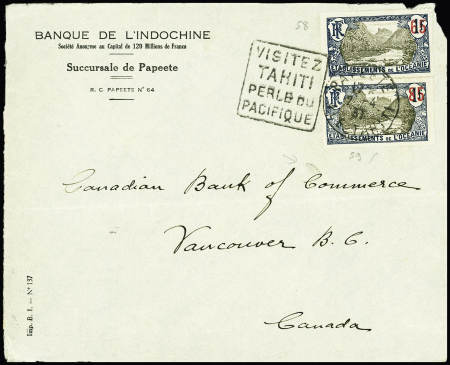 BANQUE DE L'INDOCHINE
Société Anonyme au Capital de 120 Millions de Francs
Succursale de Papeete
R. C. PAPEETE N° 64
58
VISITEZ
TAHITI
PERLE DU
PACIFIQUE
RF 15
ÉTABLISSEMENTS DE L'OCÉANIE
RF
ÉTABLISSEMENTS DE L'OCÉANIE
59
Canadian Bank of Commerce
Vancouver B. C.
Canada
Imp. B. I. — N° 137